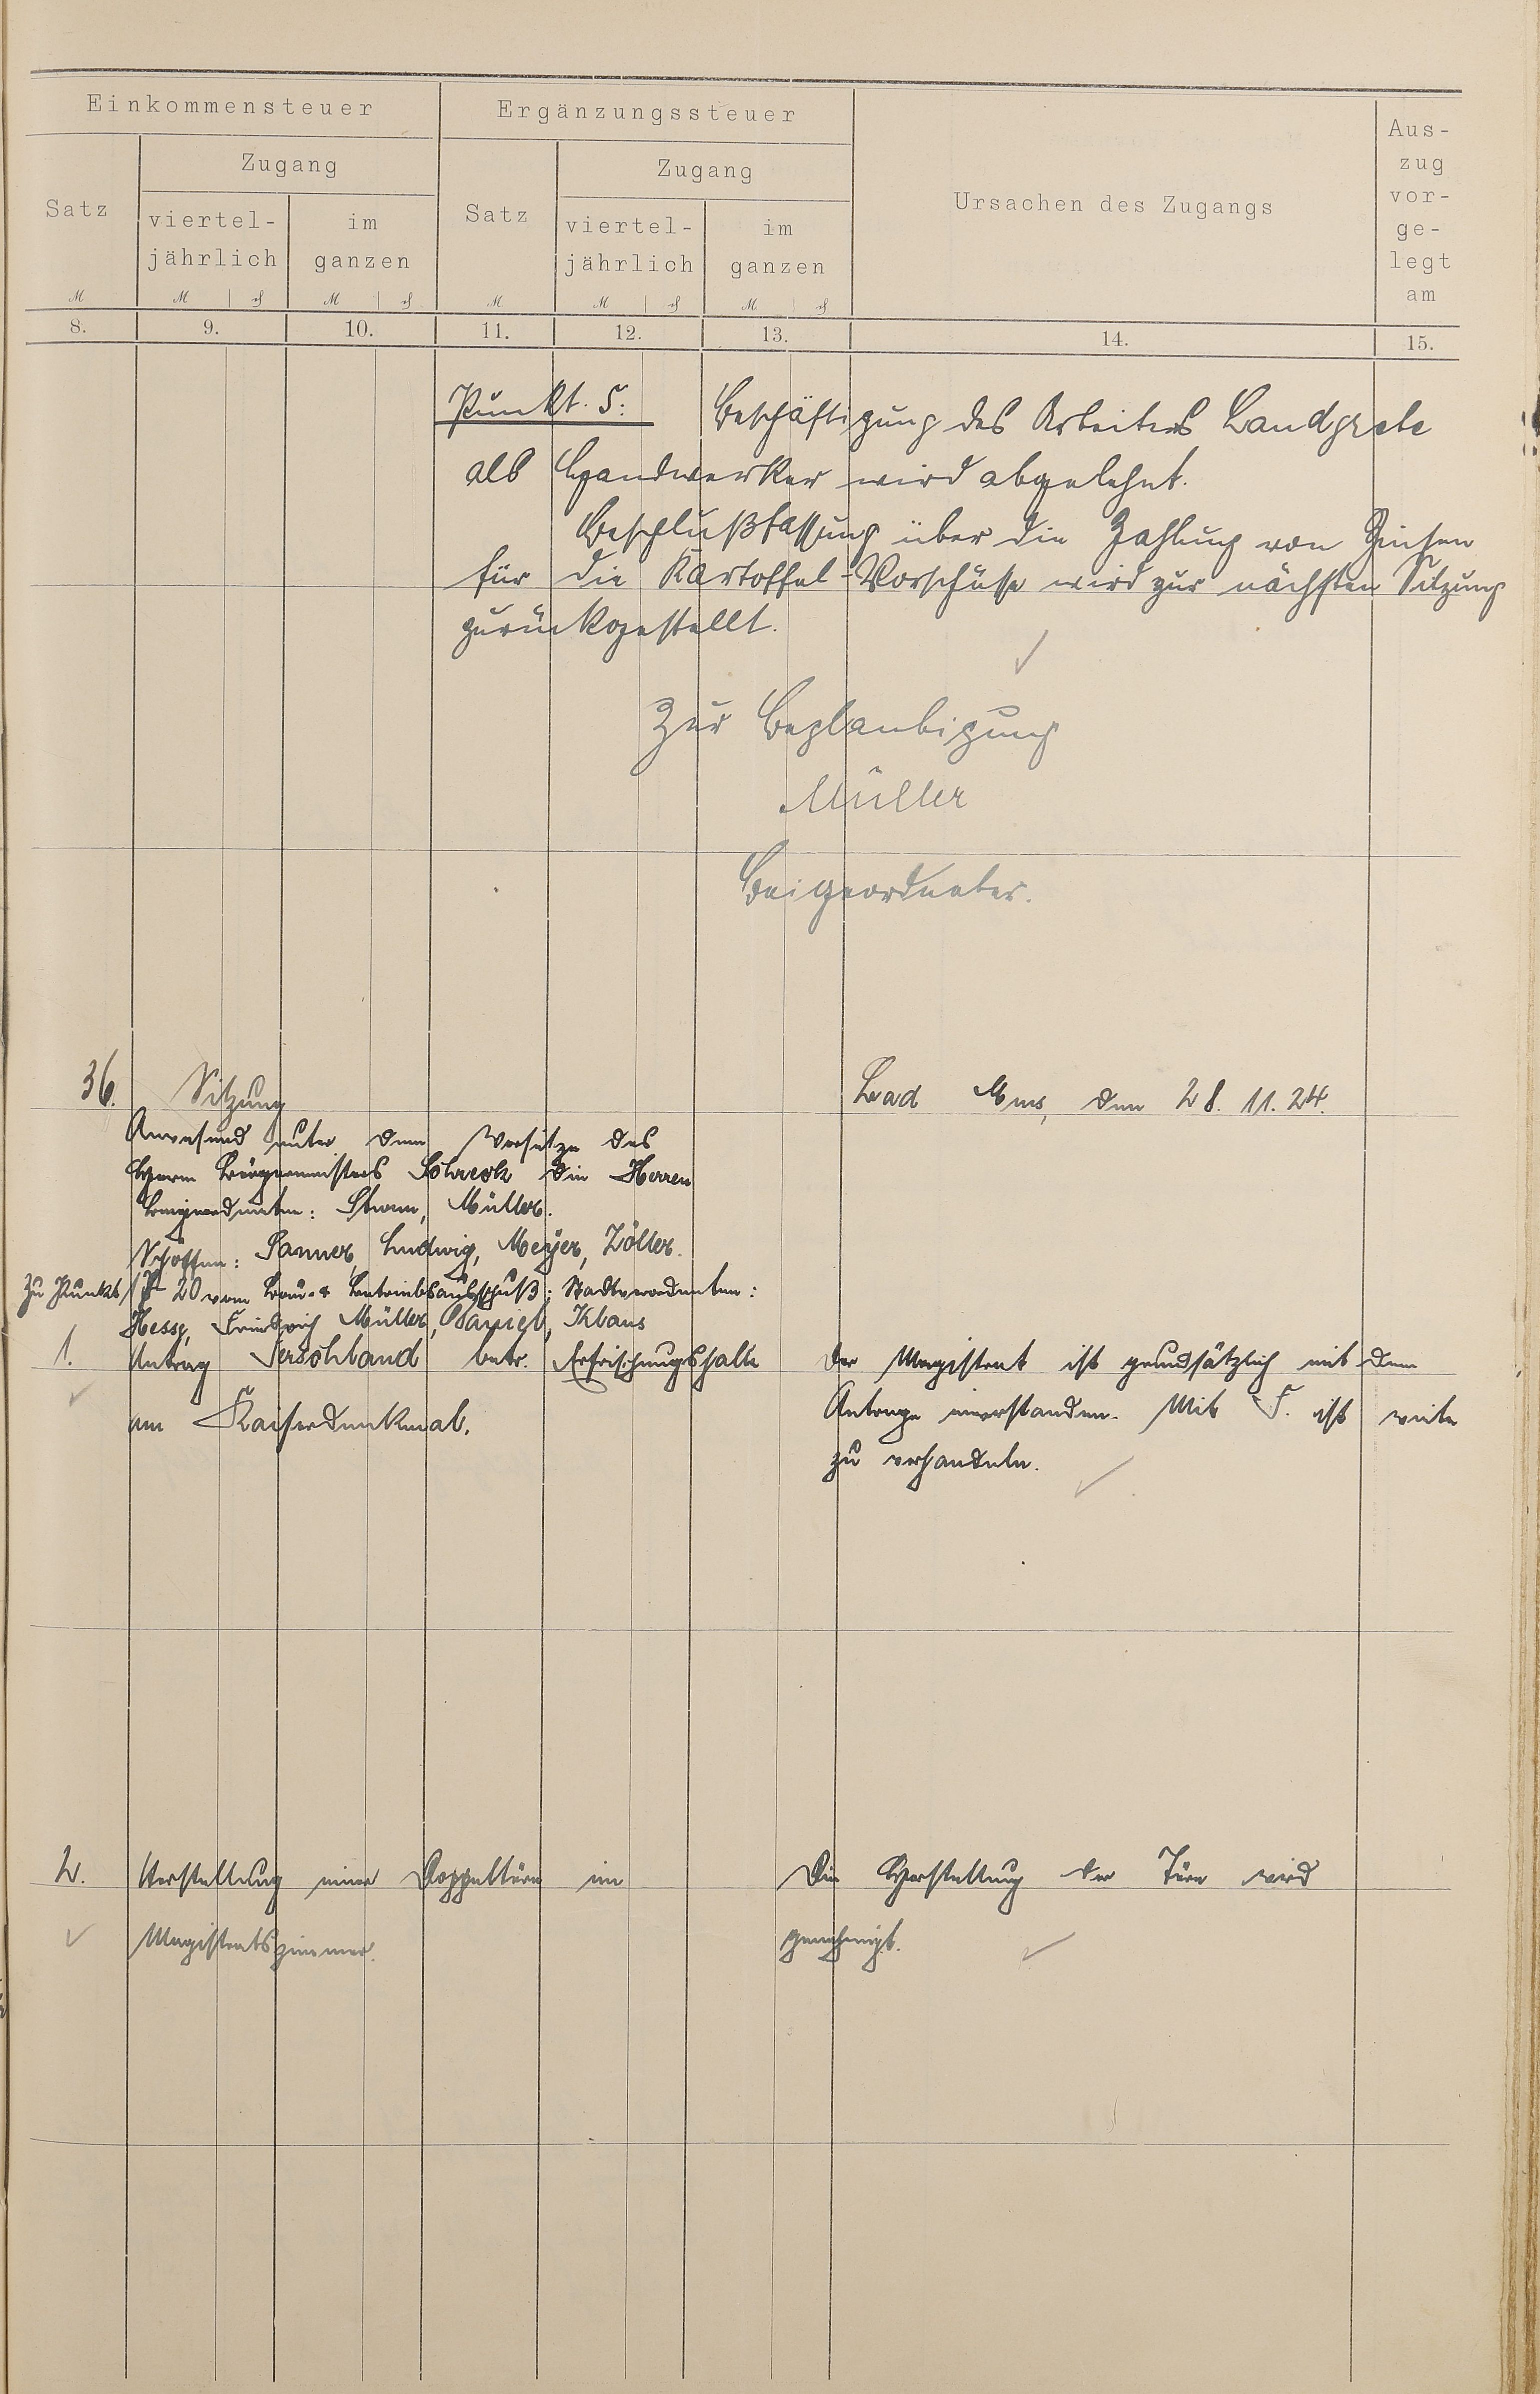 Einkommensteuer
Ergänzungssteuer
Ursachen des Zugangs
Aus-
zug
vor-
ge-
legt
am
Satz
Zugang
viertel-
jährlich
im
ganzen
Satz
Zugang
viertel-
jährlich
im
ganzen
M
M
₰
M
₰
M
M
₰
M
₰
8.
9.
10.
11.
12.
13.
14.
15.
Punkt. 5: Beschäftigung des Arbeiters Landgrebe
als Handwerker wird abgelehnt.
Beschlußfassung über die Zahlung von Zinsen
für die Kartoffel-Vorschüsse wird zur nächsten Sitzung
zurückgestellt.
Zur Beglaubigung
Müller
Beigeordneter.
36. Sitzung
Bad Ems, den 28. 11. 24.
Anwesend unter dem Vorsitze des
Herrn Bürgermeisters Schreck die Herren
Beigeordneten: Sturm, Müller.
Schöffen: Sanner, Ludwig, Meyer, Zöller.
Zu Punkt 20 vom Bau- & Betriebsausschuß: Stadtverordneten:
Hesse, Friedrich Müller, Daniel, Klaus
1. Antrag Ferschland betr. Erfrischungshalle
am Kaiserdenkmal.
Der Magistrat ist grundsätzlich mit dem
Antrage einverstanden. Mit F. ist weiter
zu verhandeln.
2. Herstellung einer Doppeltüre im
Magistratszimmer.
Die Herstellung der Türe wird
genehmigt.